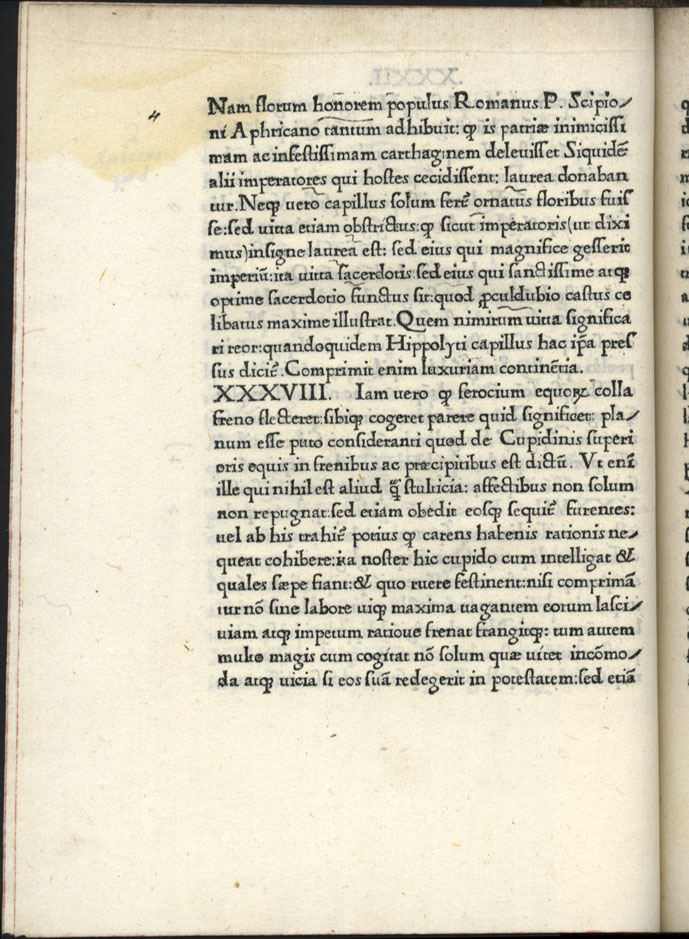 4
Nam florum honorem populus Romanus P. Scipio/
ni Aphricano tantum adhibuit: ꝙ is patriæ inimicissi
mam ac infestissimam carthaginem deleuisset Siquidē
alii imperatores qui hostes cecidissent: laurea donaban
tur. Neqꝫ uero capillus solum ferē ornatus floribus fuis
se: sed uitta etiam obstrictus: ꝙ sicut imperatoris (ut dixi
mus) insigne laurea est: sed eius qui magnifice gesserit
imperiū: ita uitta sacerdotis: sed eius qui sanctissime atqꝫ
optime sacerdotio functus sit: quod ꝓculdubio castus ce
libatus maxime illustrat. Quem nimirum uitta significa
ri reor: quandoquidem Hippolyti capillus hac ip̄a pres
sus diciť. Comprimit enim luxuriam continētia.
XXXVIII. Iam uero ꝙ ferocium equoꝝ colla
freno flecteret: sibiqꝫ cogeret parere quid significet: pla/
num esse puto consideranti quod de Cupidinis superi
oris equis in frenibus ac præcipitibus est dictū. Vt enī
ille qui nihil est aliud q̄ stulticia: affectibus non solum
non repugnat: sed etiam obedit eosqꝫ sequiť furentes:
uel ab his trahiť potius ꝙ carens habenis rationis ne/
queat cohibere: ita noster hic cupido cum intelligat &
quales sæpe fiant: & quo ruere festinent: nisi comprimā
tur nō sine labore uiqꝫ maxima uagantem eorum lasci/
uiam atqꝫ impetum ratione frenat frangitqꝫ: tum autem
multo magis cum cogitat nō solum quæ uitet incōmo/
da atqꝫ uicia si eos suā redegerit in potestatem: sed etiā